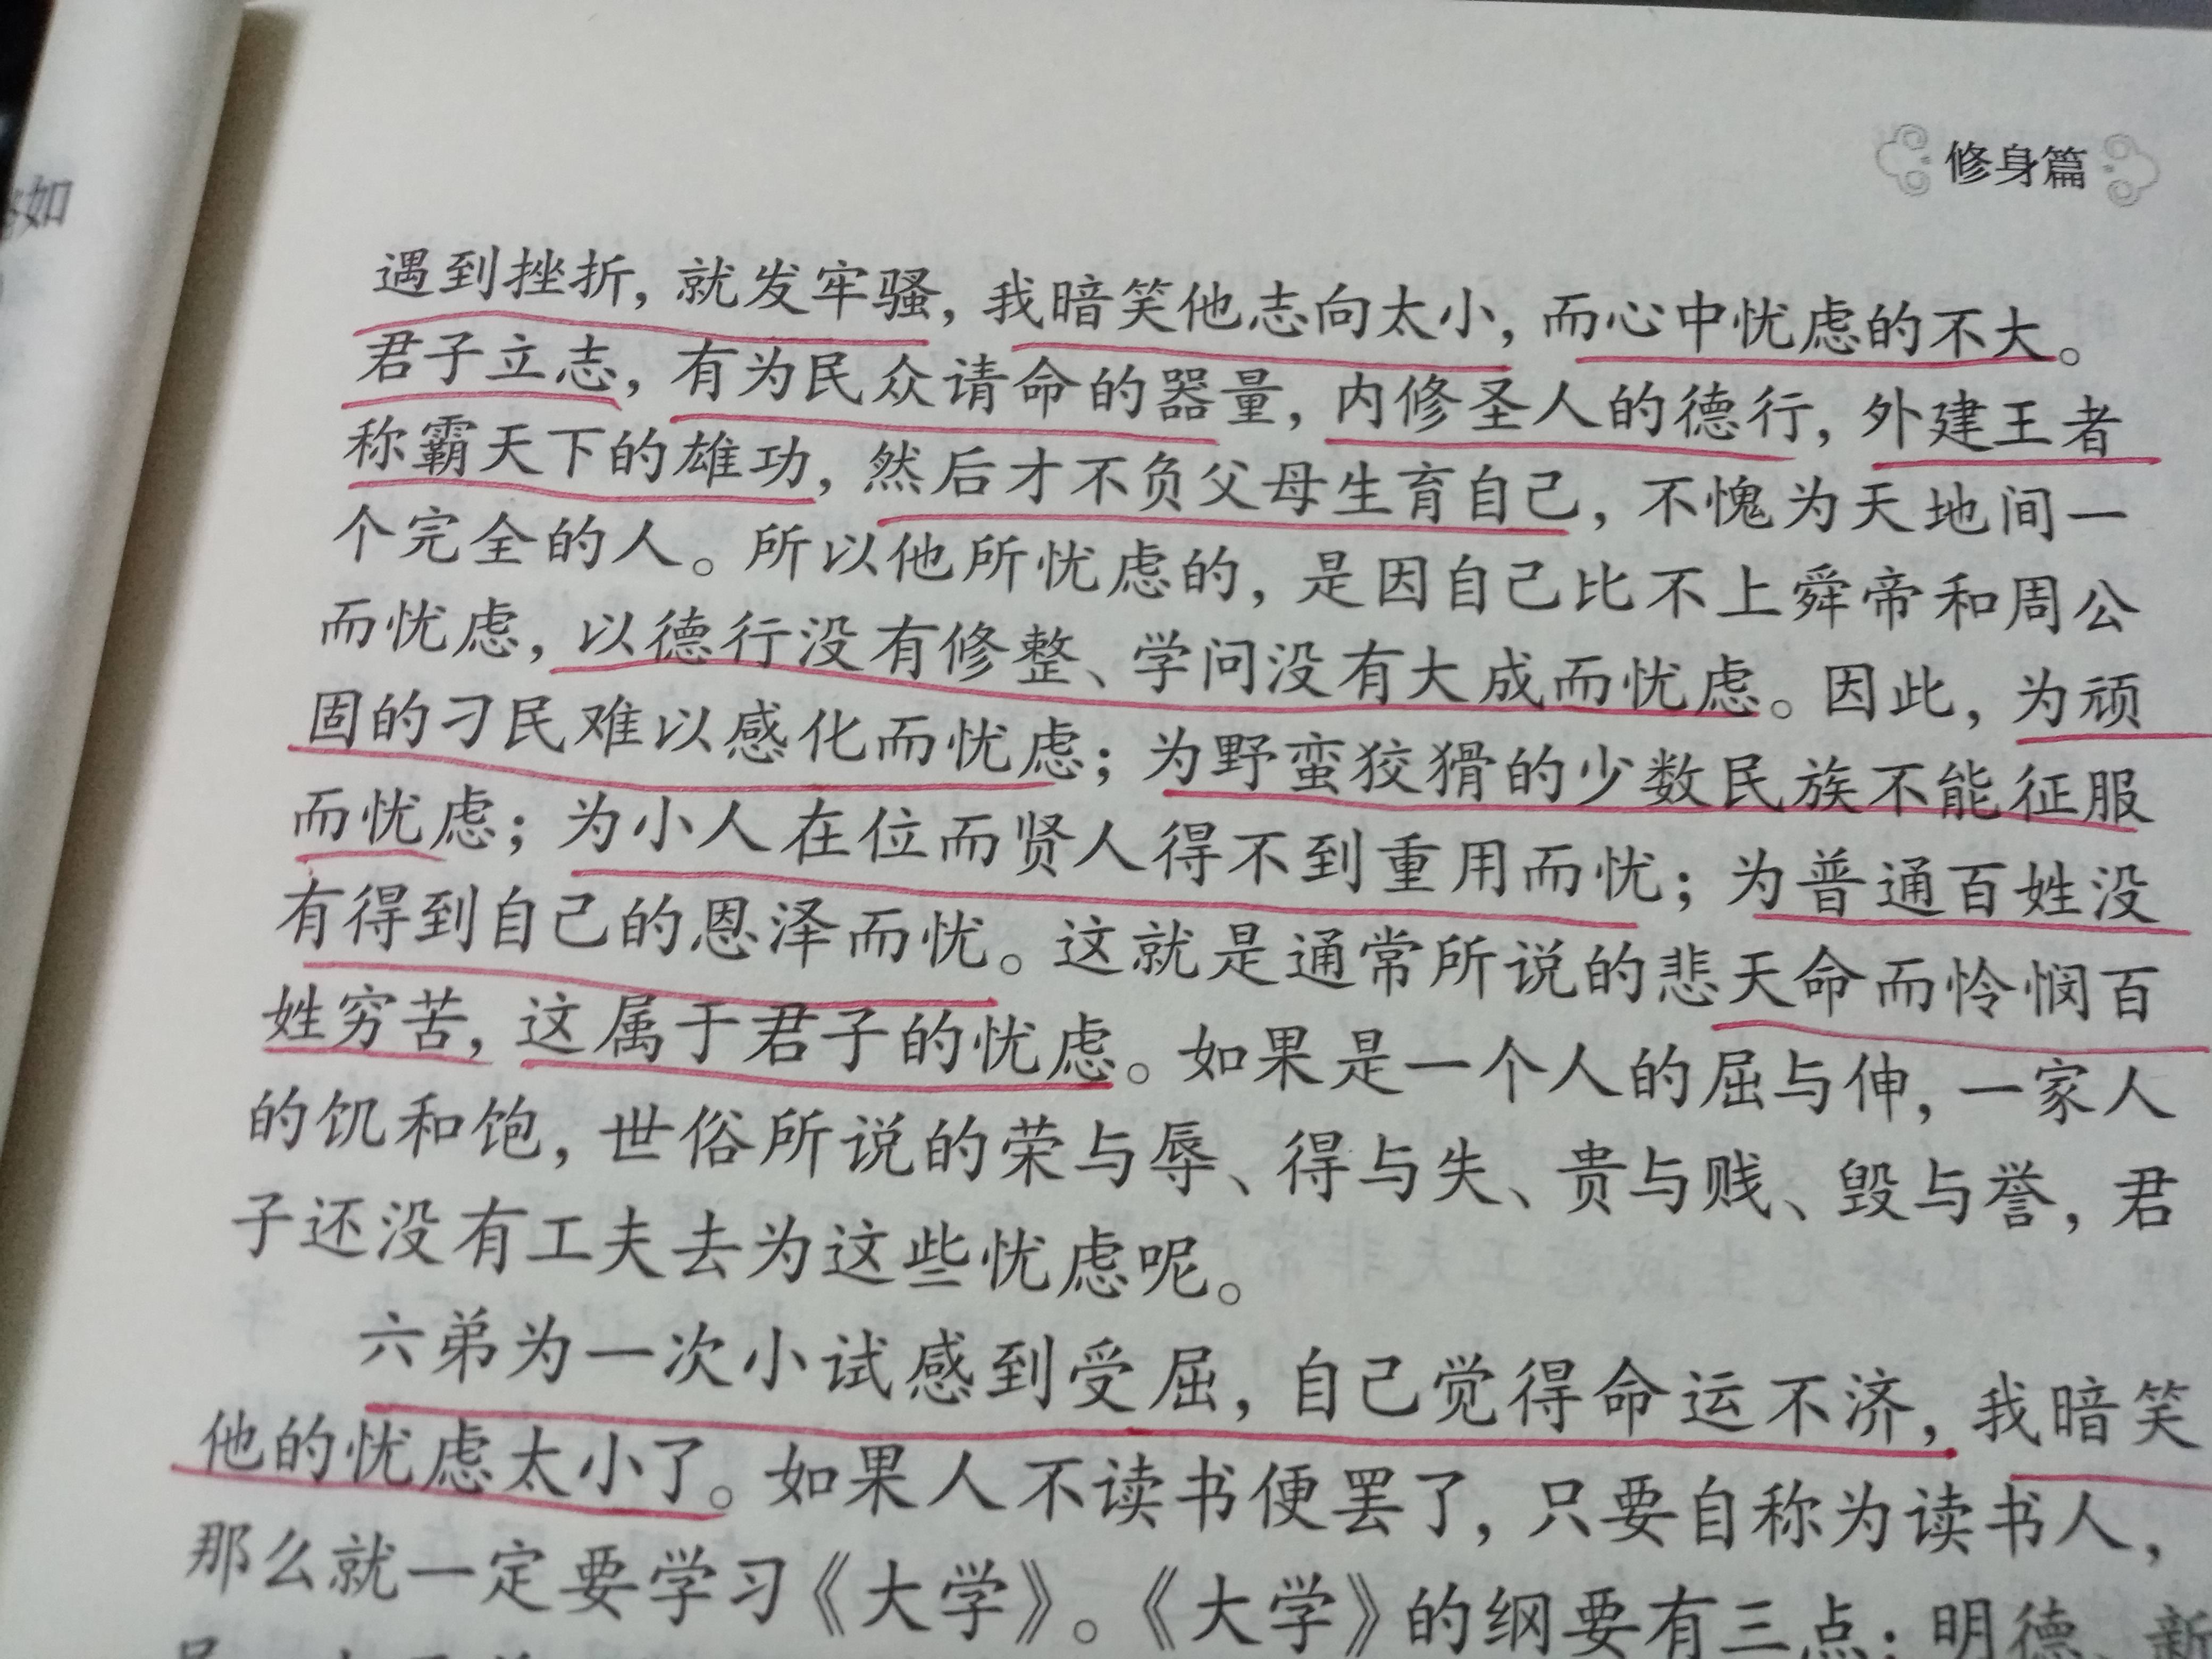 如
修身篇
遇到挫折，就发牢骚，我暗笑他志向太小，而心中忧虑的不大。
君子立志，有为民众请命的器量，内修圣人的德行，外建王者
称霸天下的雄功，然后才不负父母生育自己，不愧为天地间一
个完全的人。所以他所忧虑的，是因自己比不上舜帝和周公
而忧虑，以德行没有修整、学问没有大成而忧虑。因此，为顽
固的刁民难以感化而忧虑；为野蛮狡猾的少数民族不能征服
而忧虑；为小人在位而贤人得不到重用而忧；为普通百姓没
有得到自己的恩泽而忧。这就是通常所说的悲天命而怜悯百
姓穷苦，这属于君子的忧虑。如果是一个人的屈与伸，一家人
的饥和饱，世俗所说的荣与辱、得与失、贵与贱、毁与誉，君
子还没有工夫去为这些忧虑呢。
六弟为一次小试感到受屈，自己觉得命运不济，我暗笑
他的忧虑太小了。如果人不读书便罢了，只要自称为读书人，
那么就一定要学习《大学》。《大学》的纲要有三点：明德、新